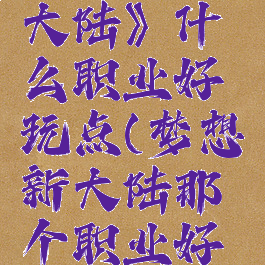 大陆》什
么职业好
玩点(梦想
新大陆那
个职业好